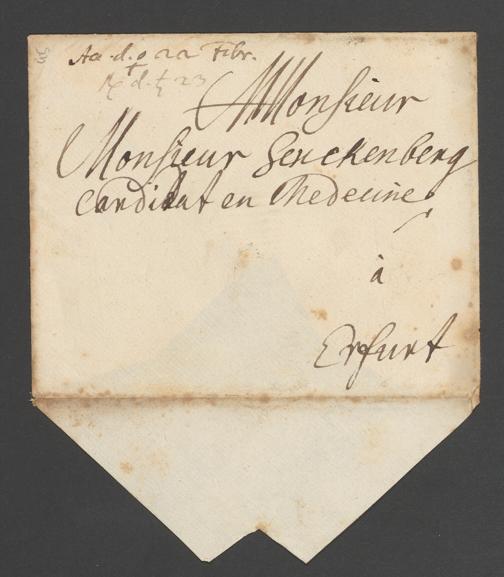 Acc. d. ♀ 22 Febr.
R. d. ♄ 23
A Monsieur
Monsieur Senckenberg
Candidat en Medecine
à
Erfurt